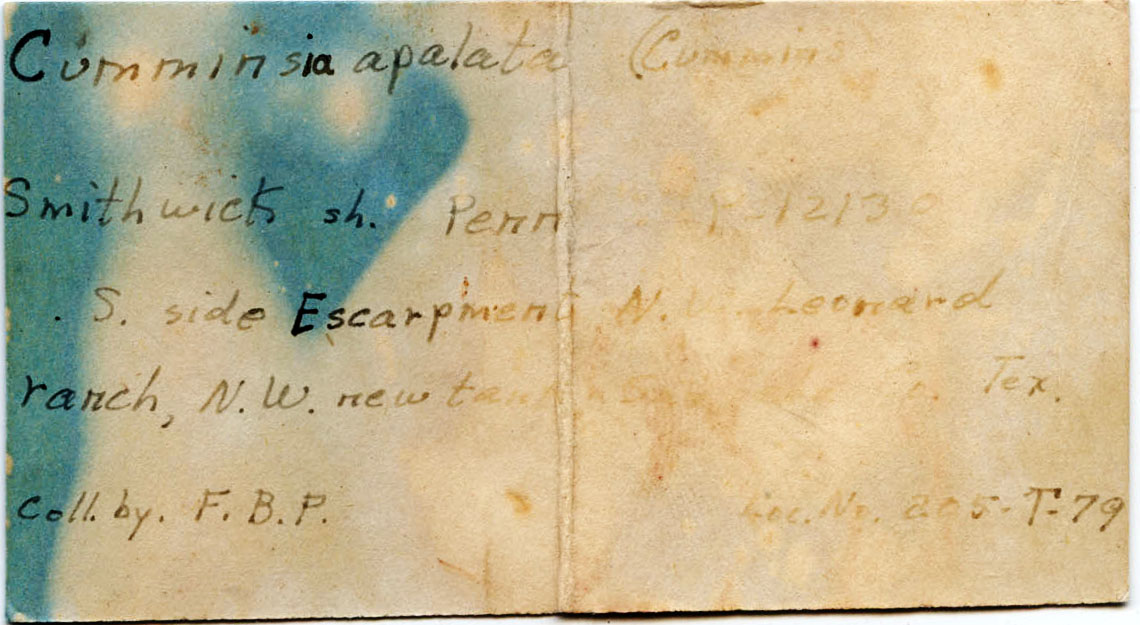 Cumminsia apalata (Cummins
Smithwick sh. Penn P-12130
S. side Escarpment N.W. Leonard
ranch, N.W. new Tex.
Coll. by. F. B. P. Loc. No. 205-T-79